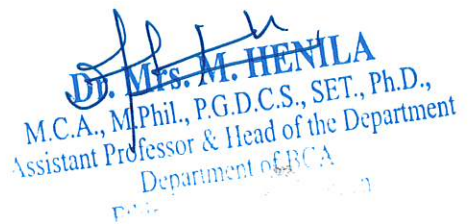 Dr. Mrs. M. HENILA
M.C.A., M.Phil., P.G.D.C.S., SET., Ph.D.,
Assistant Professor & Head of the Department
Department of BCA